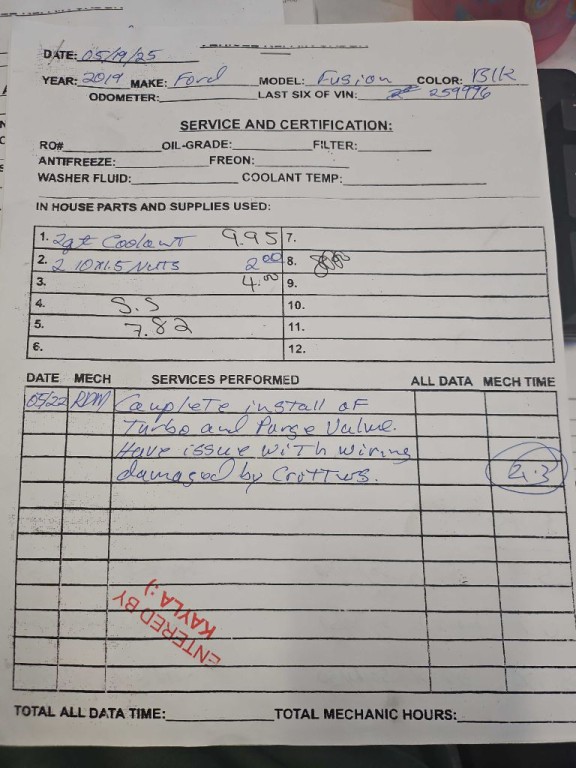 DATE: 05/19/25
YEAR: 2019 MAKE: Ford MODEL: Fusion COLOR: Blk
ODOMETER: LAST SIX OF VIN: 259996
SERVICE AND CERTIFICATION:
RO# OIL-GRADE: FILTER:
ANTIFREEZE: FREON:
WASHER FLUID: COOLANT TEMP:
IN HOUSE PARTS AND SUPPLIES USED:
1. 2qt Coolant 9.95 7.
2. 2 10x1.5 Nuts 2.00 8.
3. 4.00 9.
4. S.S 10.
5. 7.82 11.
6. 12.
DATE MECH SERVICES PERFORMED ALL DATA MECH TIME
05/22 RDM Complete install of
Turbo and Purge Valve.
Have issue with wiring
damaged by Critters. 2.3
ENTERED BY
KAYLA :)
TOTAL ALL DATA TIME: TOTAL MECHANIC HOURS: